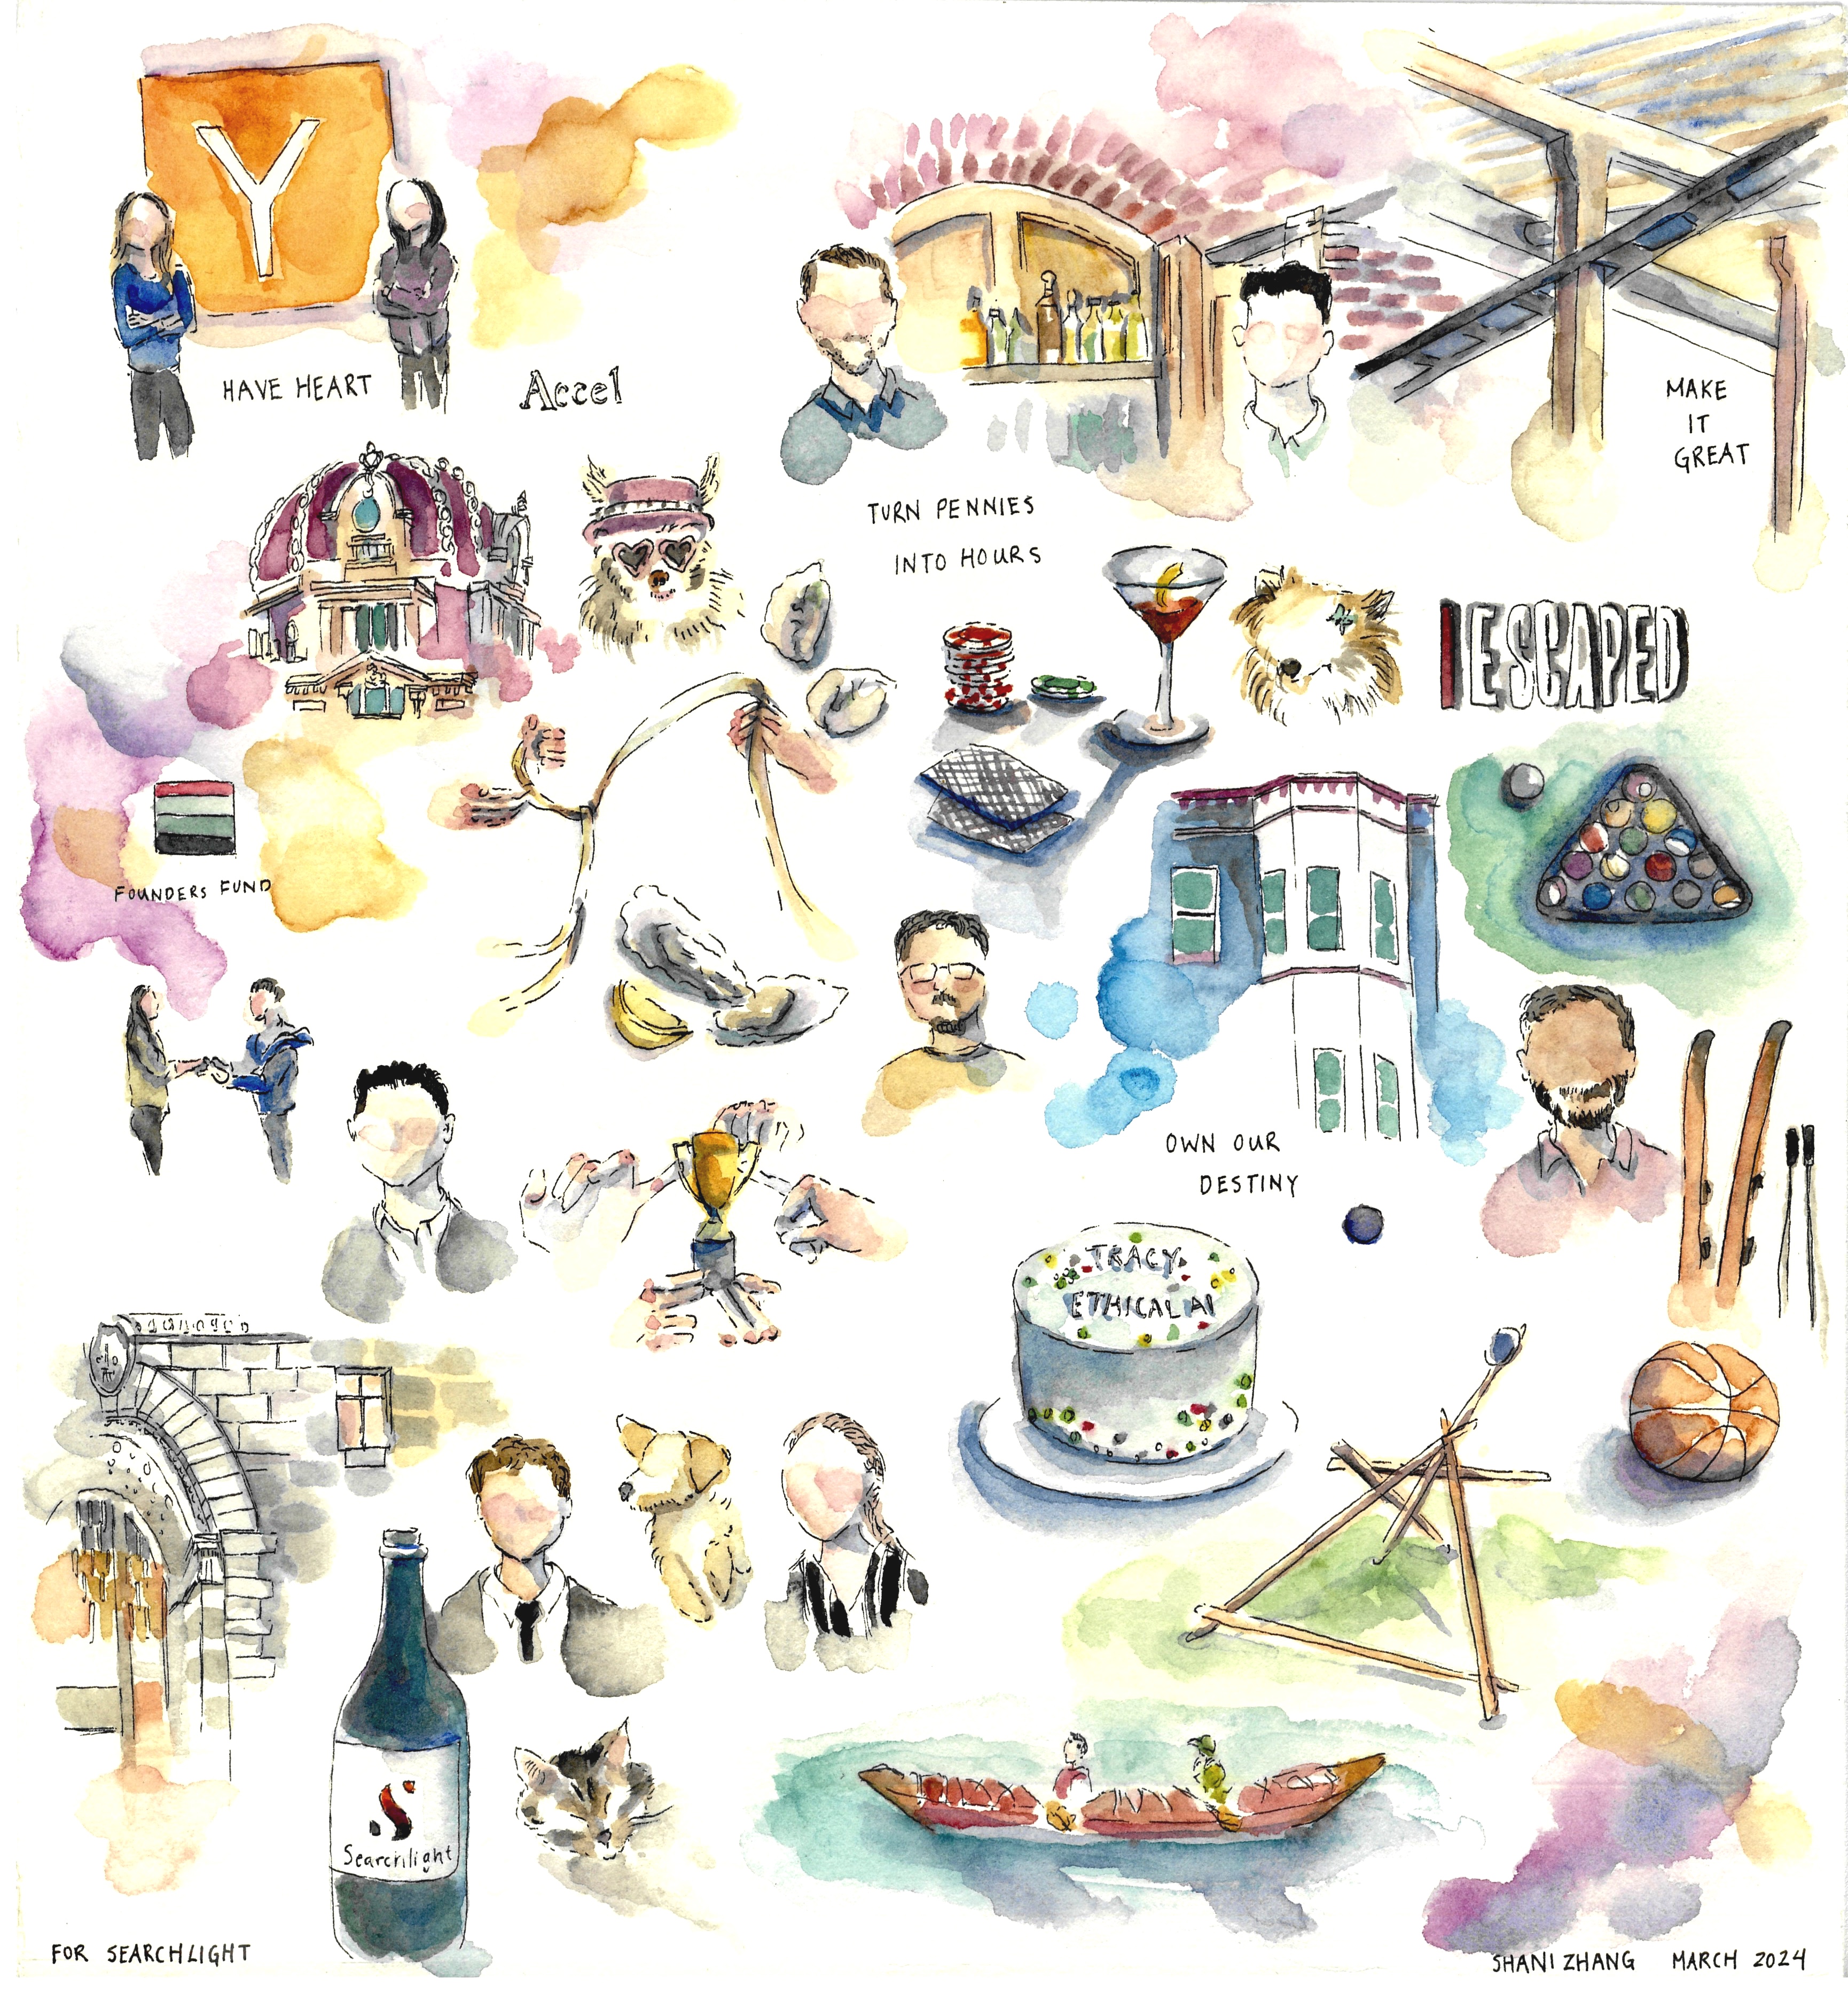 Y
HAVE HEART
Accel
MAKE
IT
GREAT
TURN PENNIES
INTO HOURS
I ESCAPED
FOUNDERS FUND
OWN OUR
DESTINY
TRACY
ETHICAL AI
S
Searchlight
FOR SEARCHLIGHT
SHANI ZHANG MARCH 2024